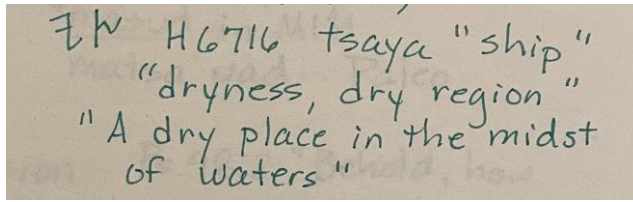 𐤑𐤉 H6716 tsaya "ship"
"dryness, dry region"
"A dry place in the midst
of waters"